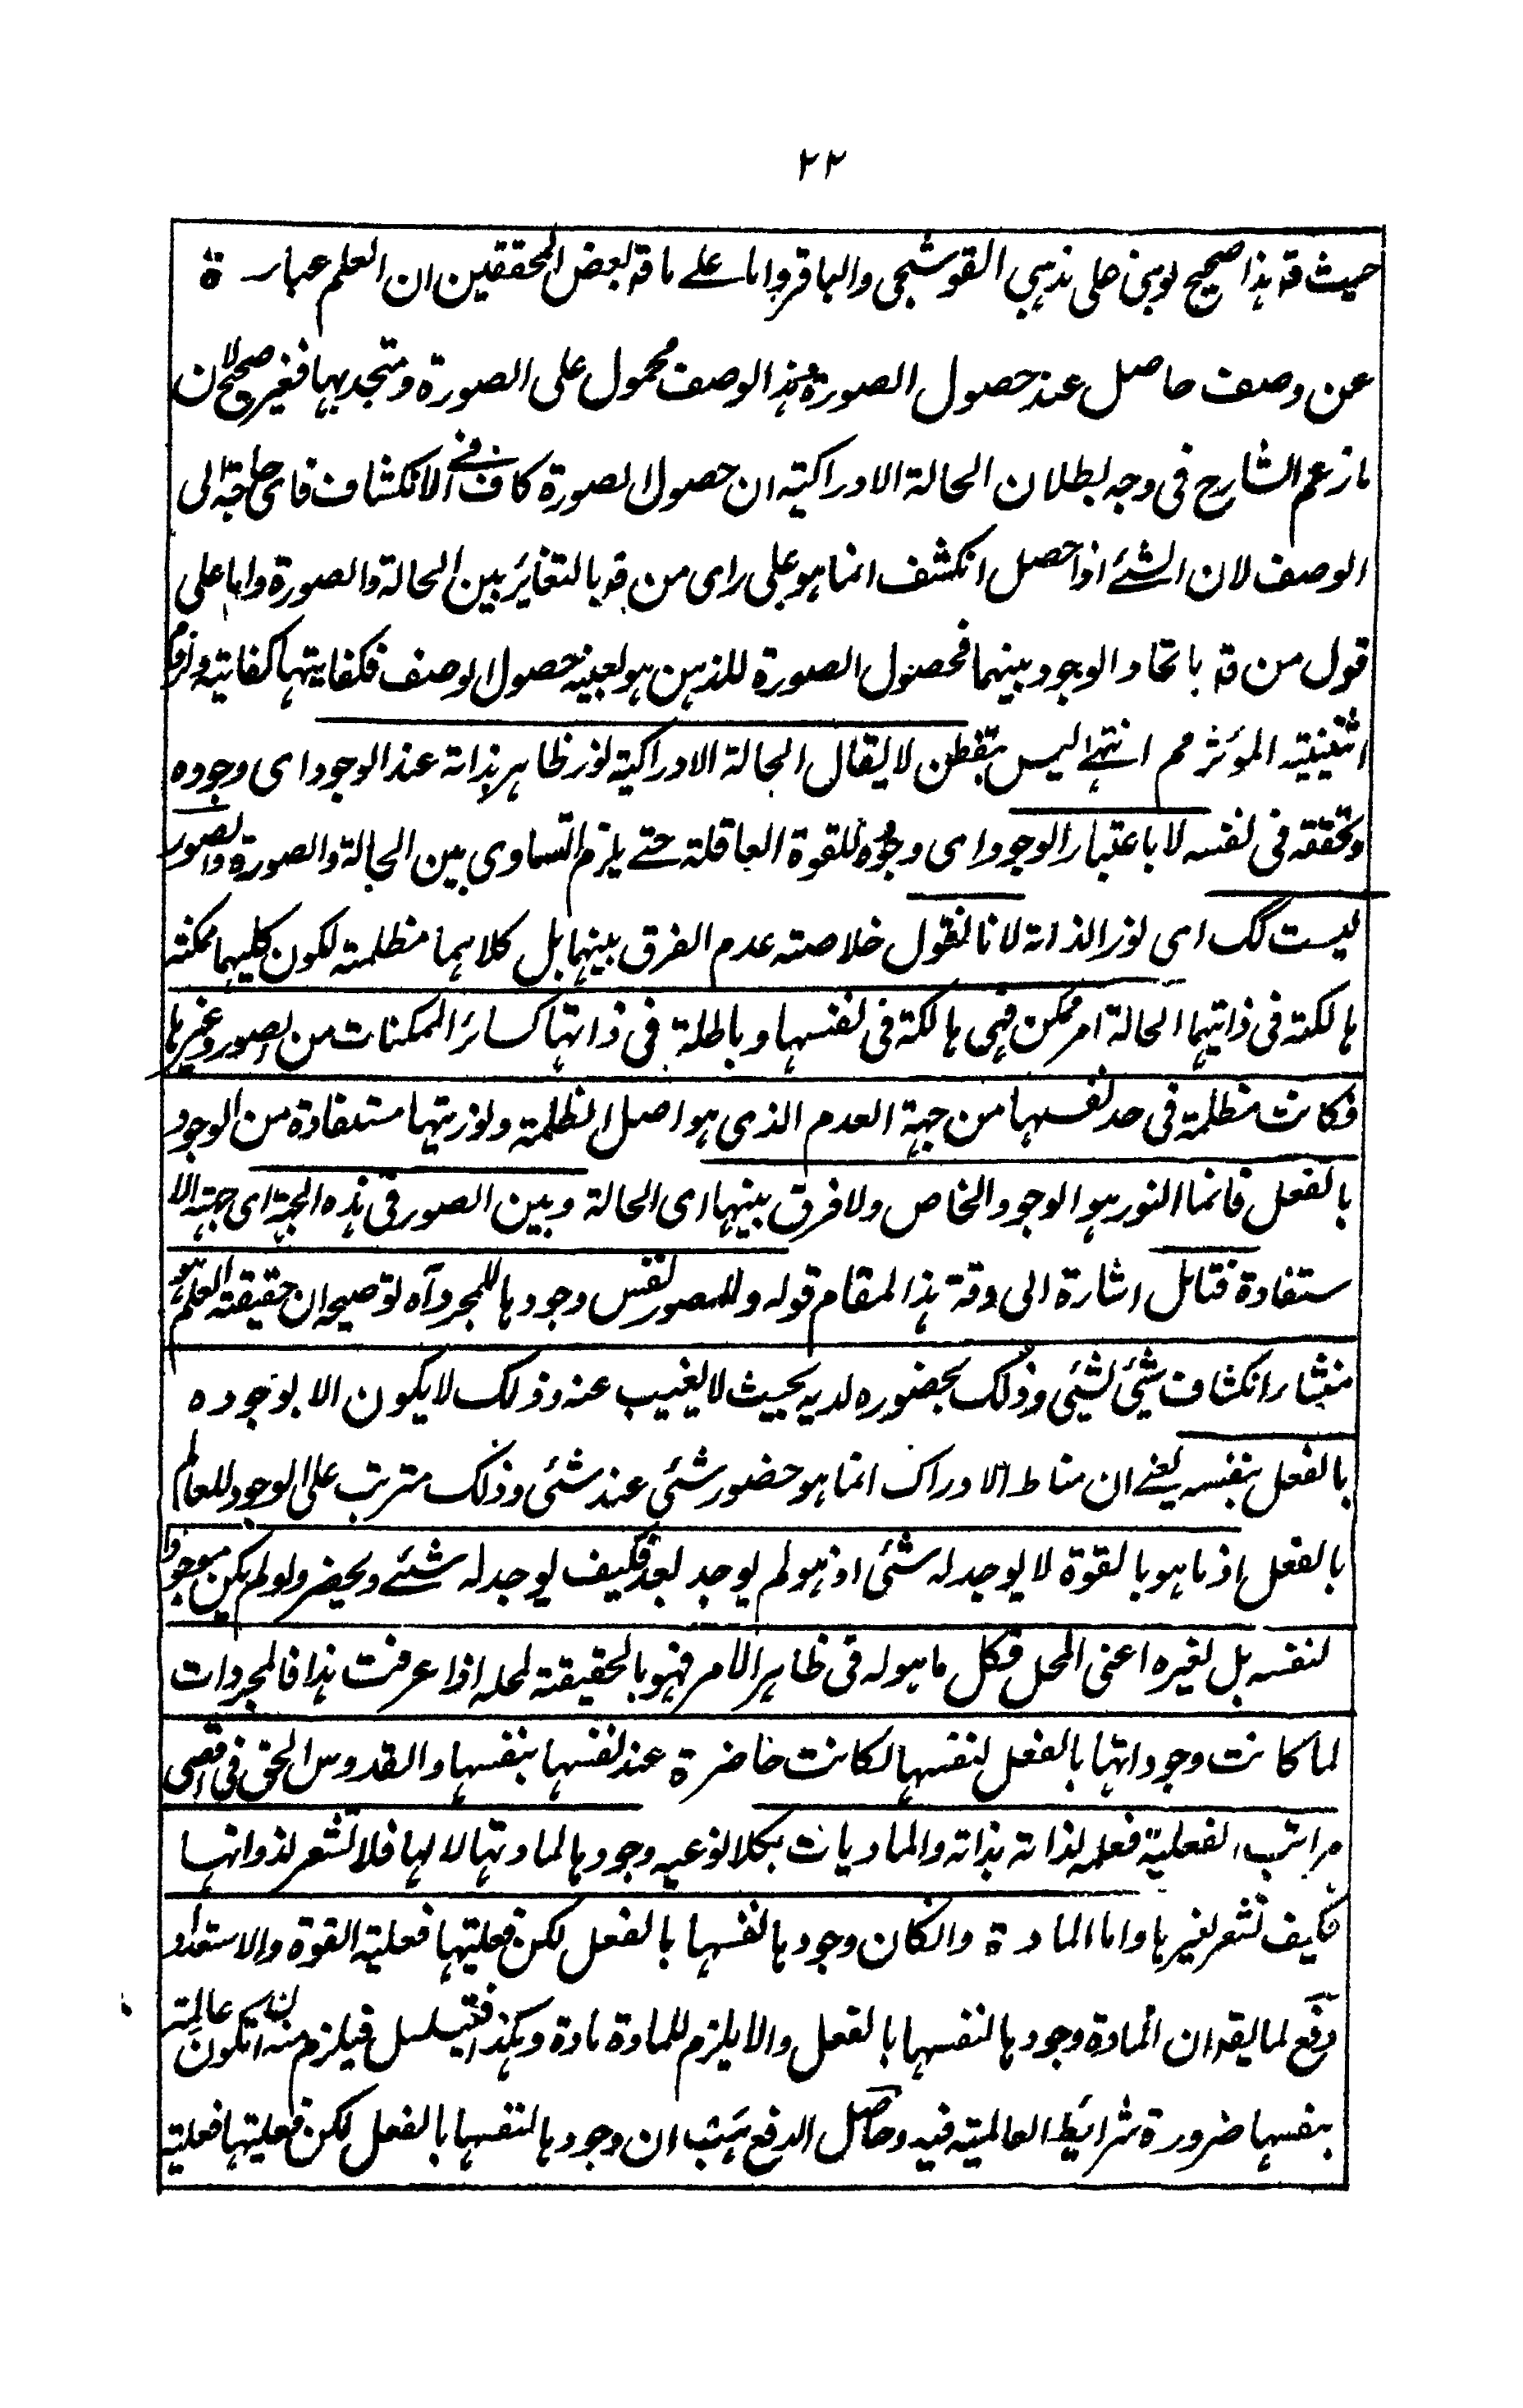 ٢٢
حيث قہ ہذا صحيح لو بنى على مذہبى القوشجى والباقر واما علے ما قہ بعض المحققين ان العلم عبارة
عن وصف حاصل عند حصول الصورة وہذا الوصف محمول على الصورة ومتحد بہا فغير صحيح لان
ما زعم الشارح فى وجہ بطلان الحالة الادراكية ان حصول الصورة كاف فے الانكشاف فاى حاجة الى
الوصف لان الشئے اذا حصل انكشف انما ہو على راى من قہ بالتغائر بين الحالة والصورة واما على
قول من قہ باتحاد الوجود بينہما فحصول الصورة للذہن ہو بعينہ حصول الوصف فكفايتہا كفايتہ ولزوم
اثنينية المؤثر مم انتہے ليس بتفطن لا يقال الحالة الادراكية نور ظاہر بذاتہ عند الوجود اى وجودہ
وتحققہ فى نفسہ لا باعتبار الوجود اى وجودہ للقوة العاقلة حتے يلزم التساوى بين الحالة والصورة والصور
ليست كک اى نور الذاتہ لانا نقول خلاصتہ عدم الفرق بينہما بل كلاہما مظلمة لكون كليہما ممكنة
ہالكة فى ذاتيہما الحالة امر ممكن فہى ہالكة فى نفسہا وباطلة فى ذاتہا كسائر الممكنات من الصور وغيرہا
فكانت مظلمة فى حد نفسہا من جہة العدم الذى ہو اصل الظلمة ونوريتہا مستفادة من الوجود
بالفعل فانما النور ہو الوجود الخاص ولا فرق بينہا اى الحالة وبين الصور فى ہذہ الجہة اى جہة الا
ستفادة فتامل اشارة الى دقة ہذا المقام قولہ وللصور نفس وجودہا للمجرد آہ توضيحہ ان حقيقة العلم ہو
منشار انكشاف شئى لشئى وذلک بحضورہ لديہ بحيث لا يغيب عنہ وذلک لا يكون الا بوجودہ
بالفعل بنفسہ يعنے ان مناط الادراک انما ہو حضور شئى عند شئى وذلک مترتب على الوجود للعالم
بالفعل اذ ما ہو بالقوة لا يوجد لہ شئى اذ ہو لم يوجد بعد فكيف يوجد لہ شئے ويحضر ولو لم يكن موجودا
لنفسہ بل لغيرہ اعنى المحل فكل ما ہو لہ فى ظاہر الامر فہو بالحقيقة لمحلہ اذا عرفت ہذا فالمجردات
لما كانت وجوداتہا بالفعل لنفسہا لكانت حاضرة عند نفسہا بنفسہا والقدوس الحق فى اقصى
مراتب الفعلية فعلمہ لذاتہ بذاتہ والماديات بكلا نوعيہ وجودہا لمادتہا لا لہا فلا تشعر لذواتہا
فكيف تشعر لغيرہا واما المادة وانكان وجودہا لنفسہا بالفعل لكن فعليتہا فعلية القوة والاستعداد
دفع لما يقہ ان المادة وجودہا لنفسہا بالفعل والا يلزم للمادة مادة وہكذا فيتسلسل فيلزم منہ ان تكون عالمة
بنفسہا ضرورة شرائط العالمية فيہ وحاصل الدفع ہہنا ان وجودہا لنفسہا بالفعل لكن فعليتہا فعلية